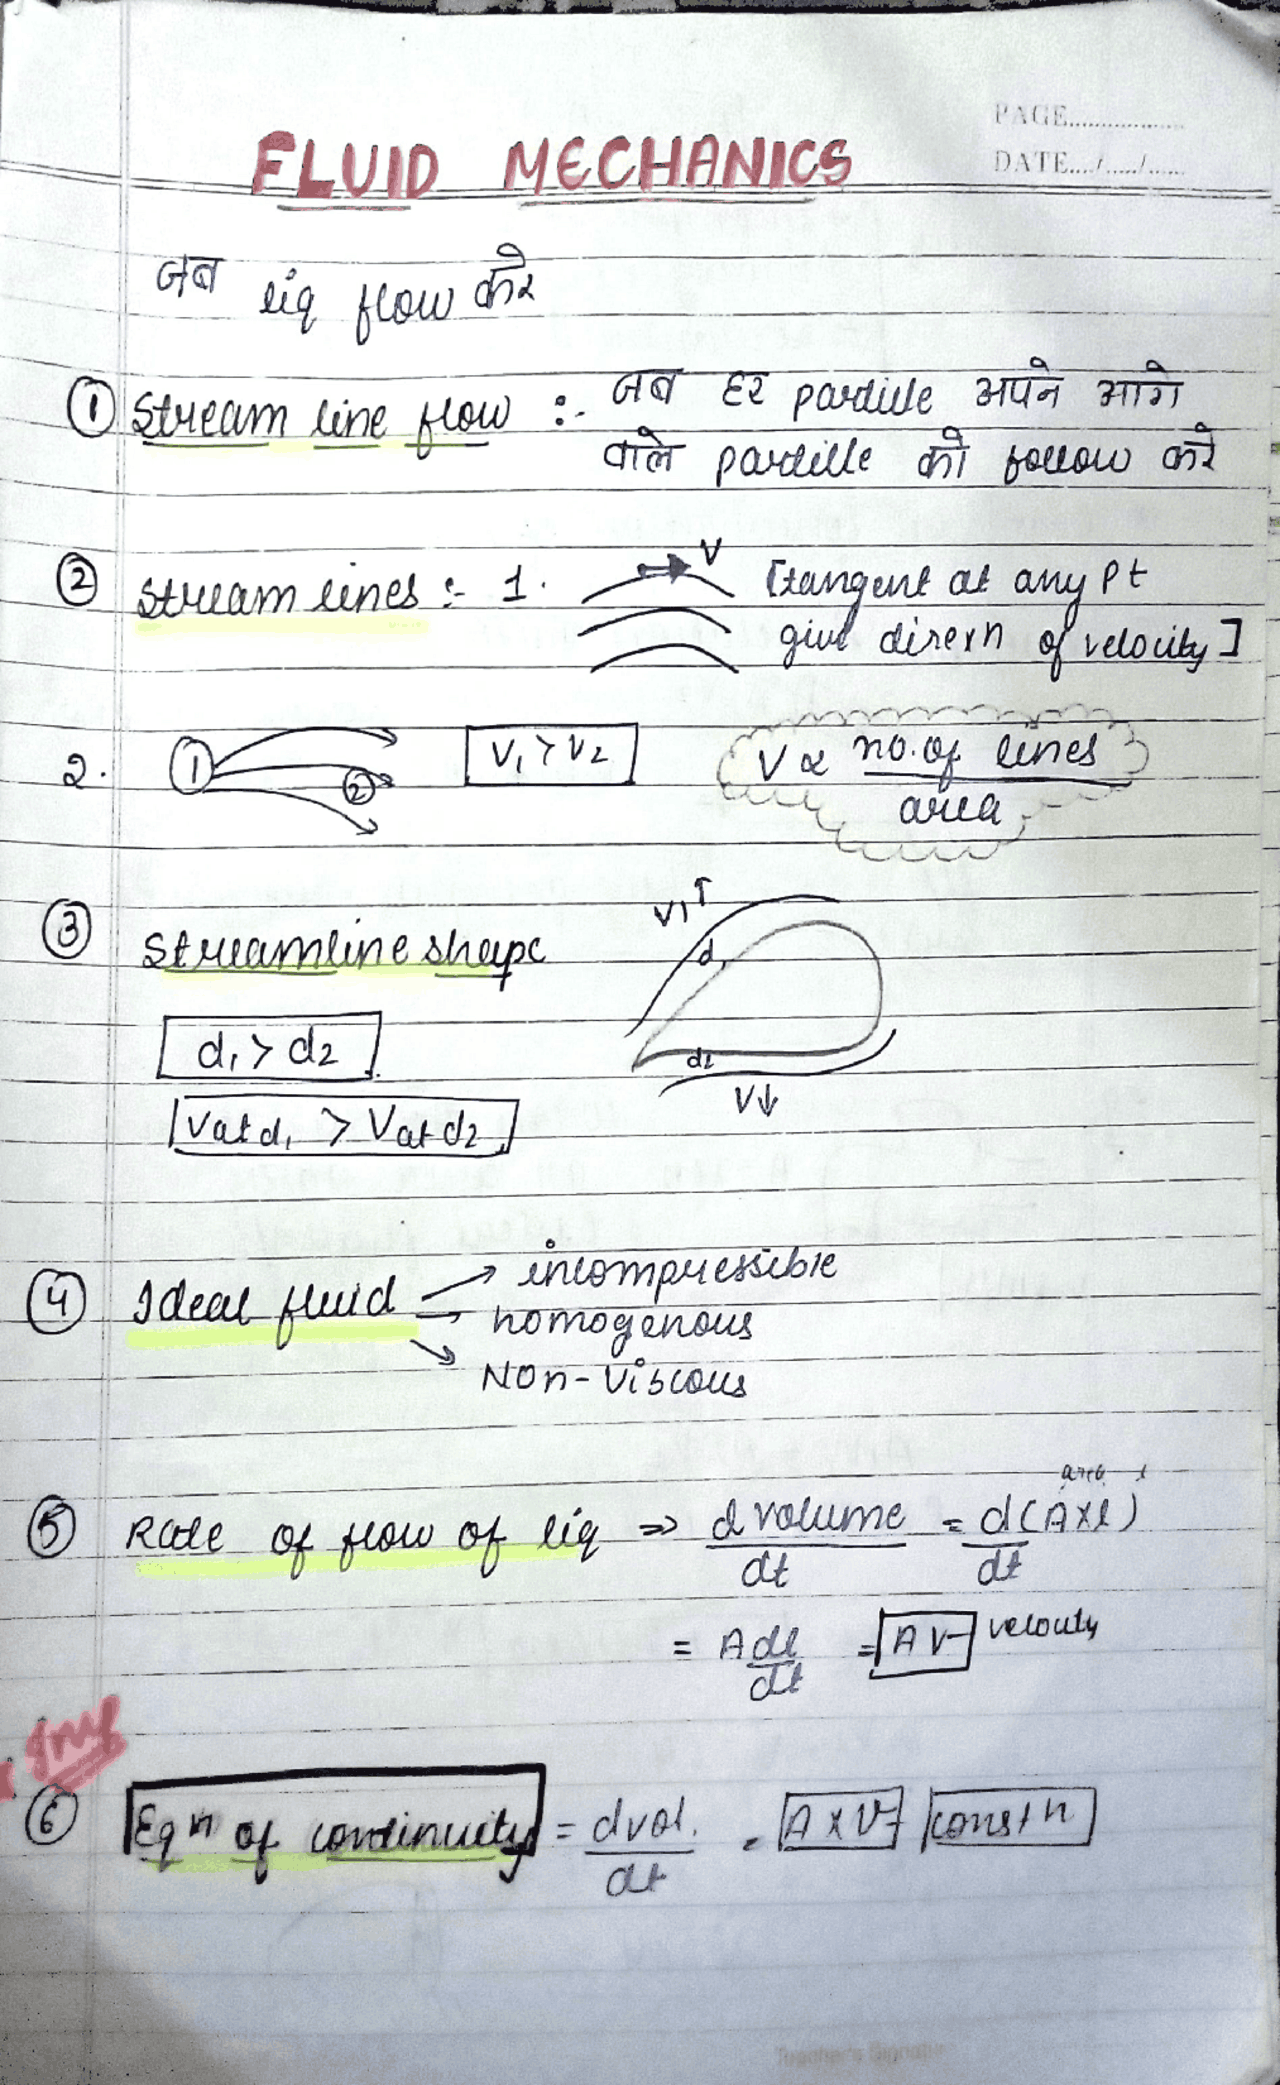 PAGE..................
DATE..../....../......
FLUID MECHANICS
जब liq flow करे
① Stream line flow :- जब हर particle अपने आगे
वाले particle को follow करे
② Stream lines :- 1. V [tangent at any pt
give direxn of velocity]
2. ① ② V₁ > V₂ V ∝ no. of lines
area
V↑
③ Streamline shape d₁
d₁ > d₂ d₂
V↓
V at d₁ > V at d₂
④ Ideal fluid → incompressible
→ homogenous
→ Non-Viscous
area l
⑤ Rate of flow of liq ⇒ d volume / dt = d(A×l) / dt
= A dl / dt = AV velocity
Imp
⑥ Eqⁿ of continuity = dvol. / dt = A×V constn
Teacher's Signatu